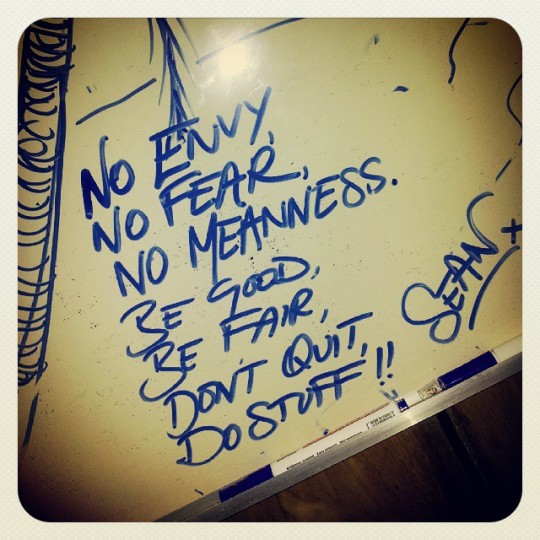 NO ENVY,
NO FEAR,
NO MEANNESS.
BE GOOD,
BE FAIR,
DON'T QUIT,
DO STUFF!!
SEAN